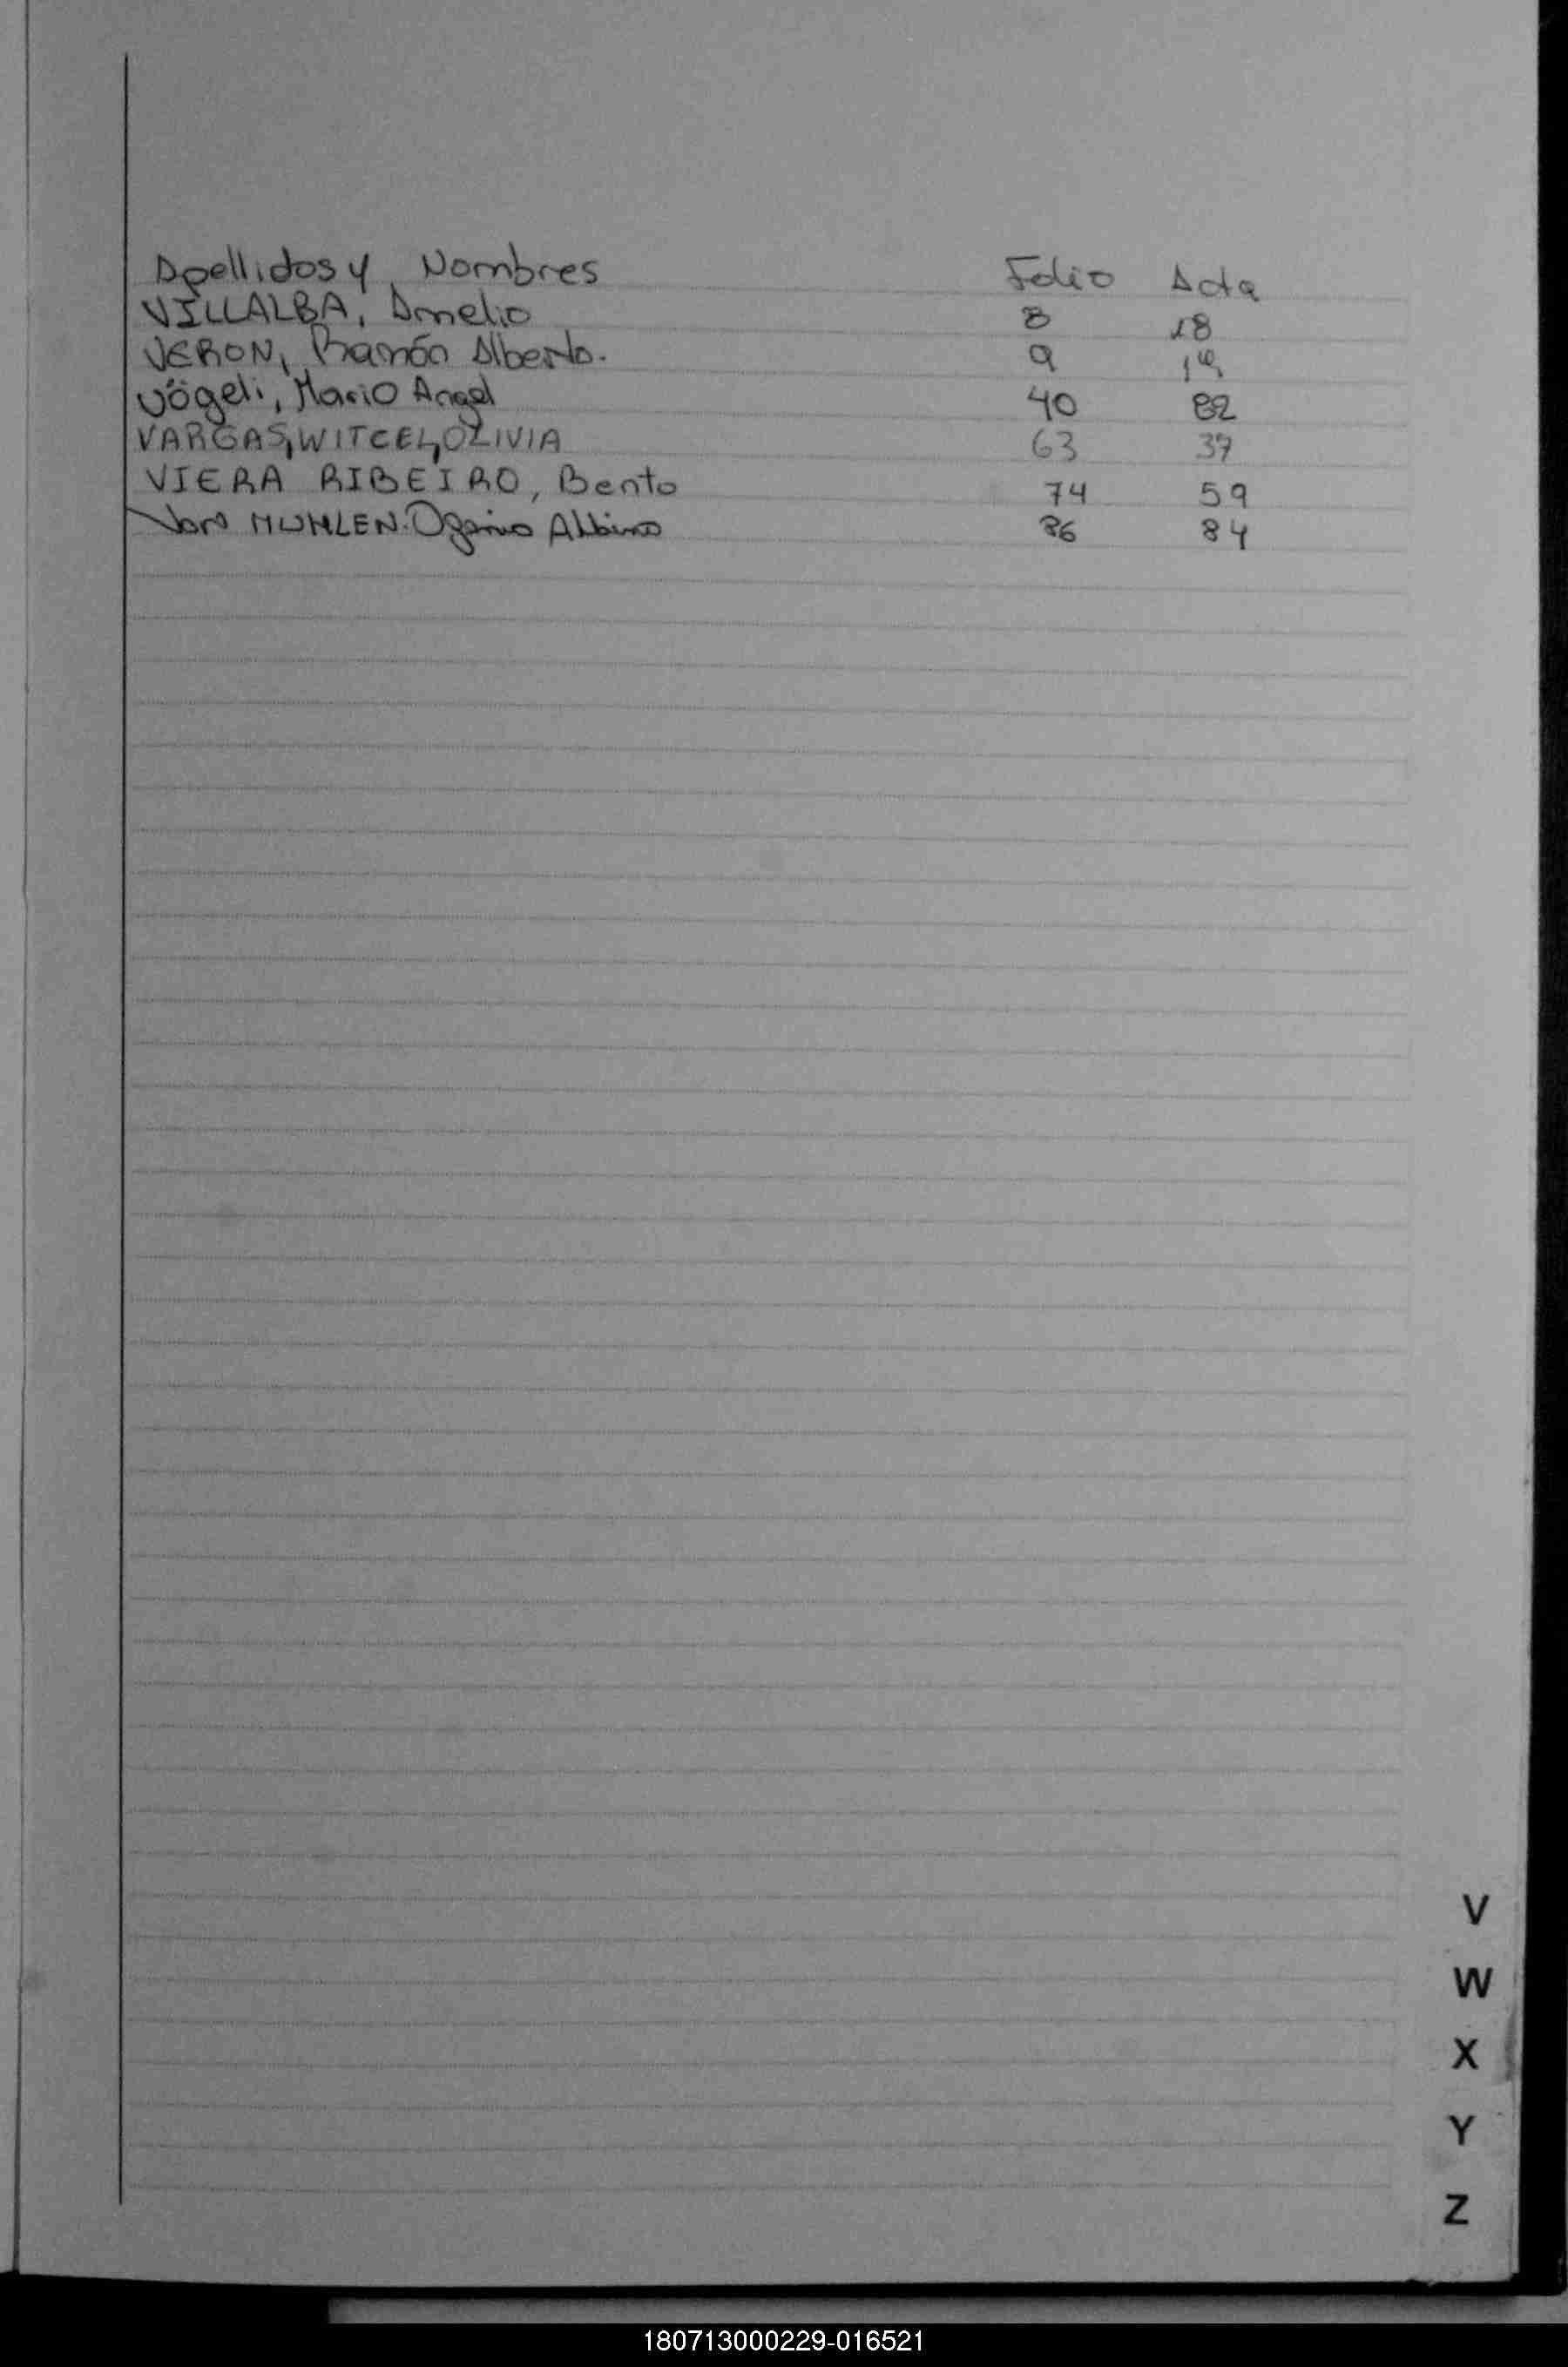 Apellidos y Nombres Folio Acta
VILLALBA, Amelio 8 18
VERON, Ramón Alberto. 9 19
Vögeli, Mario Angel 40 82
VARGAS, WITCEL, OLIVIA 63 37
VIERA RIBEIRO, Bento 74 59
Von MUHLEN. Albino 86 84
V
W
X
Y
Z
180713000229-016521